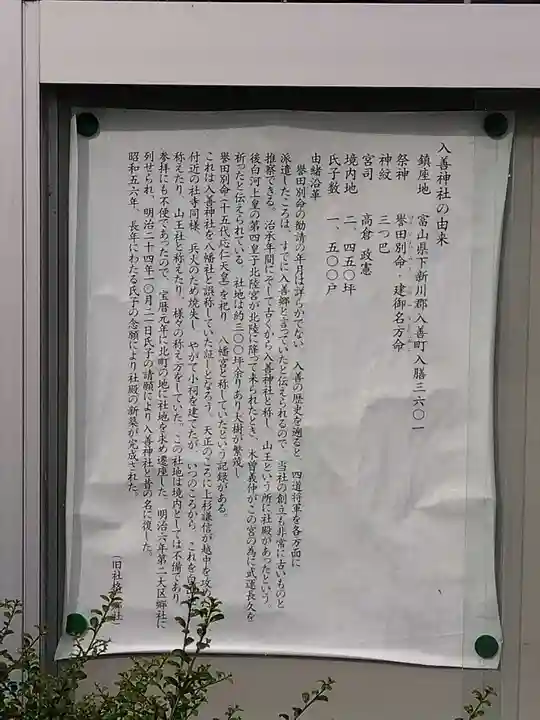 入善神社の由来
鎮座地 富山県下新川郡入善町入膳三六〇一
祭神 誉田別命・建御名方命
神紋 三つ巴
宮司 高倉 政憲
境内地 二、四五〇坪
氏子数 一、五〇〇戸
由緒沿革
誉田別命の勧請の年月は詳らかでない。入善の歴史を遡ると、四道将軍を各方面に
派遣したころは、すでに入善郷と言っていたと伝えられるので、当社の創立も非常に古いものと
推察できる。治承年間にそして古くから入善神社と称し、山王という所に社殿があったという。
後白河上皇の第四皇子北陸宮が北陸に降って来られたとき、木曽義仲がこの宮の為に武運長久を
祈ったと伝えられている。社地は約三〇〇坪余りあり大樹が繁茂
誉田別命(十五代応仁天皇)を祀り、八幡宮と称していたという記録がある。
これは入善神社を八幡社と誤称していた証しとなろう。天正のころに上杉謙信が越中を攻め
付近の社寺同様、兵火のため焼失し、やがて小祠を建てたが、いつのころから、これを白
称えたり、山王社と称えたり、様々の称え方をしていた。この社地は境内としては不備であり、
参拝にも不便であったので、宝暦元年に北町の地に社地を求め遷座した。明治六年第二大区郷社に
列せられ、明治二十四年一〇月二一日氏子の請願により入善神社と昔の名に復した。
昭和五六年、長年にわたる氏子の念願により社殿の新築が完成された。
(旧社格 郷社)